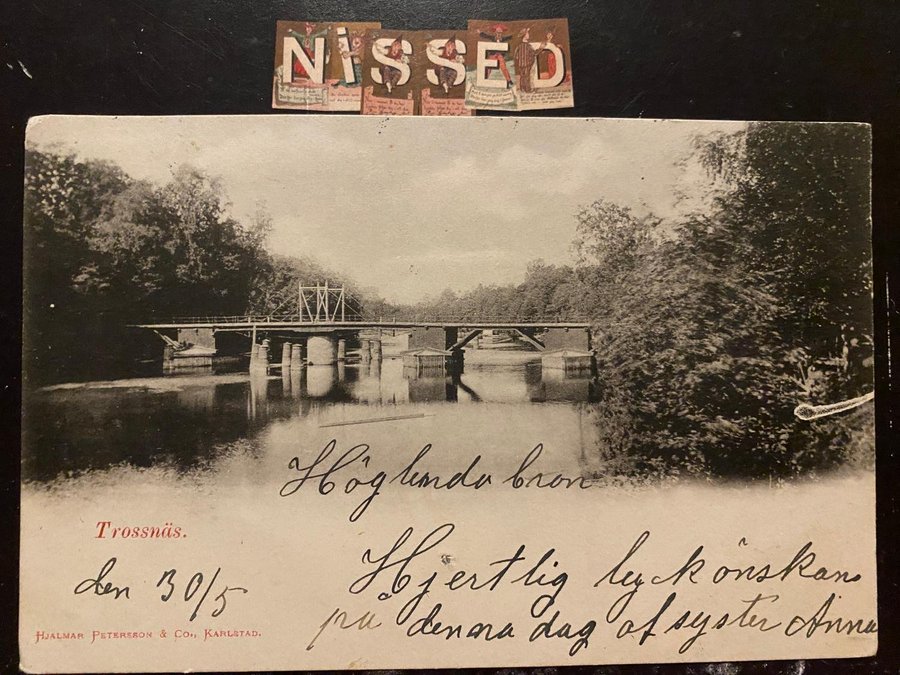 NiSSED
Höglunda bron
Trossnäs.
den 30/5
Hjertlig lyckönskan
på denna dag af syster Anna
HJALMAR PETERSSON & Co., KARLSTAD.